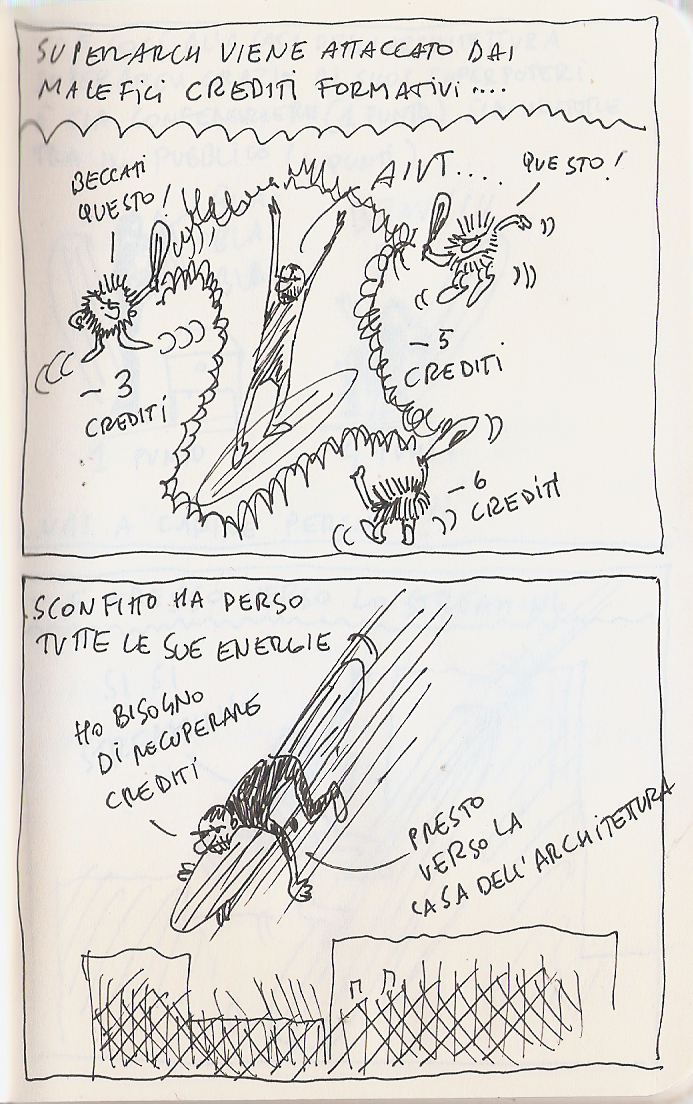 SUPERARCH VIENE ATTACCATO DAI
MALEFICI CREDITI FORMATIVI....
BECCATI
QUESTO!
AIUT....
QUESTO!
- 3
CREDITI
- 5
CREDITI
- 6
CREDITI
SCONFITTO HA PERSO
TUTTE LE SUE ENERGIE
HO BISOGNO
DI RECUPERARE
CREDITI
PRESTO
VERSO LA
CASA DELL'ARCHITETTURA